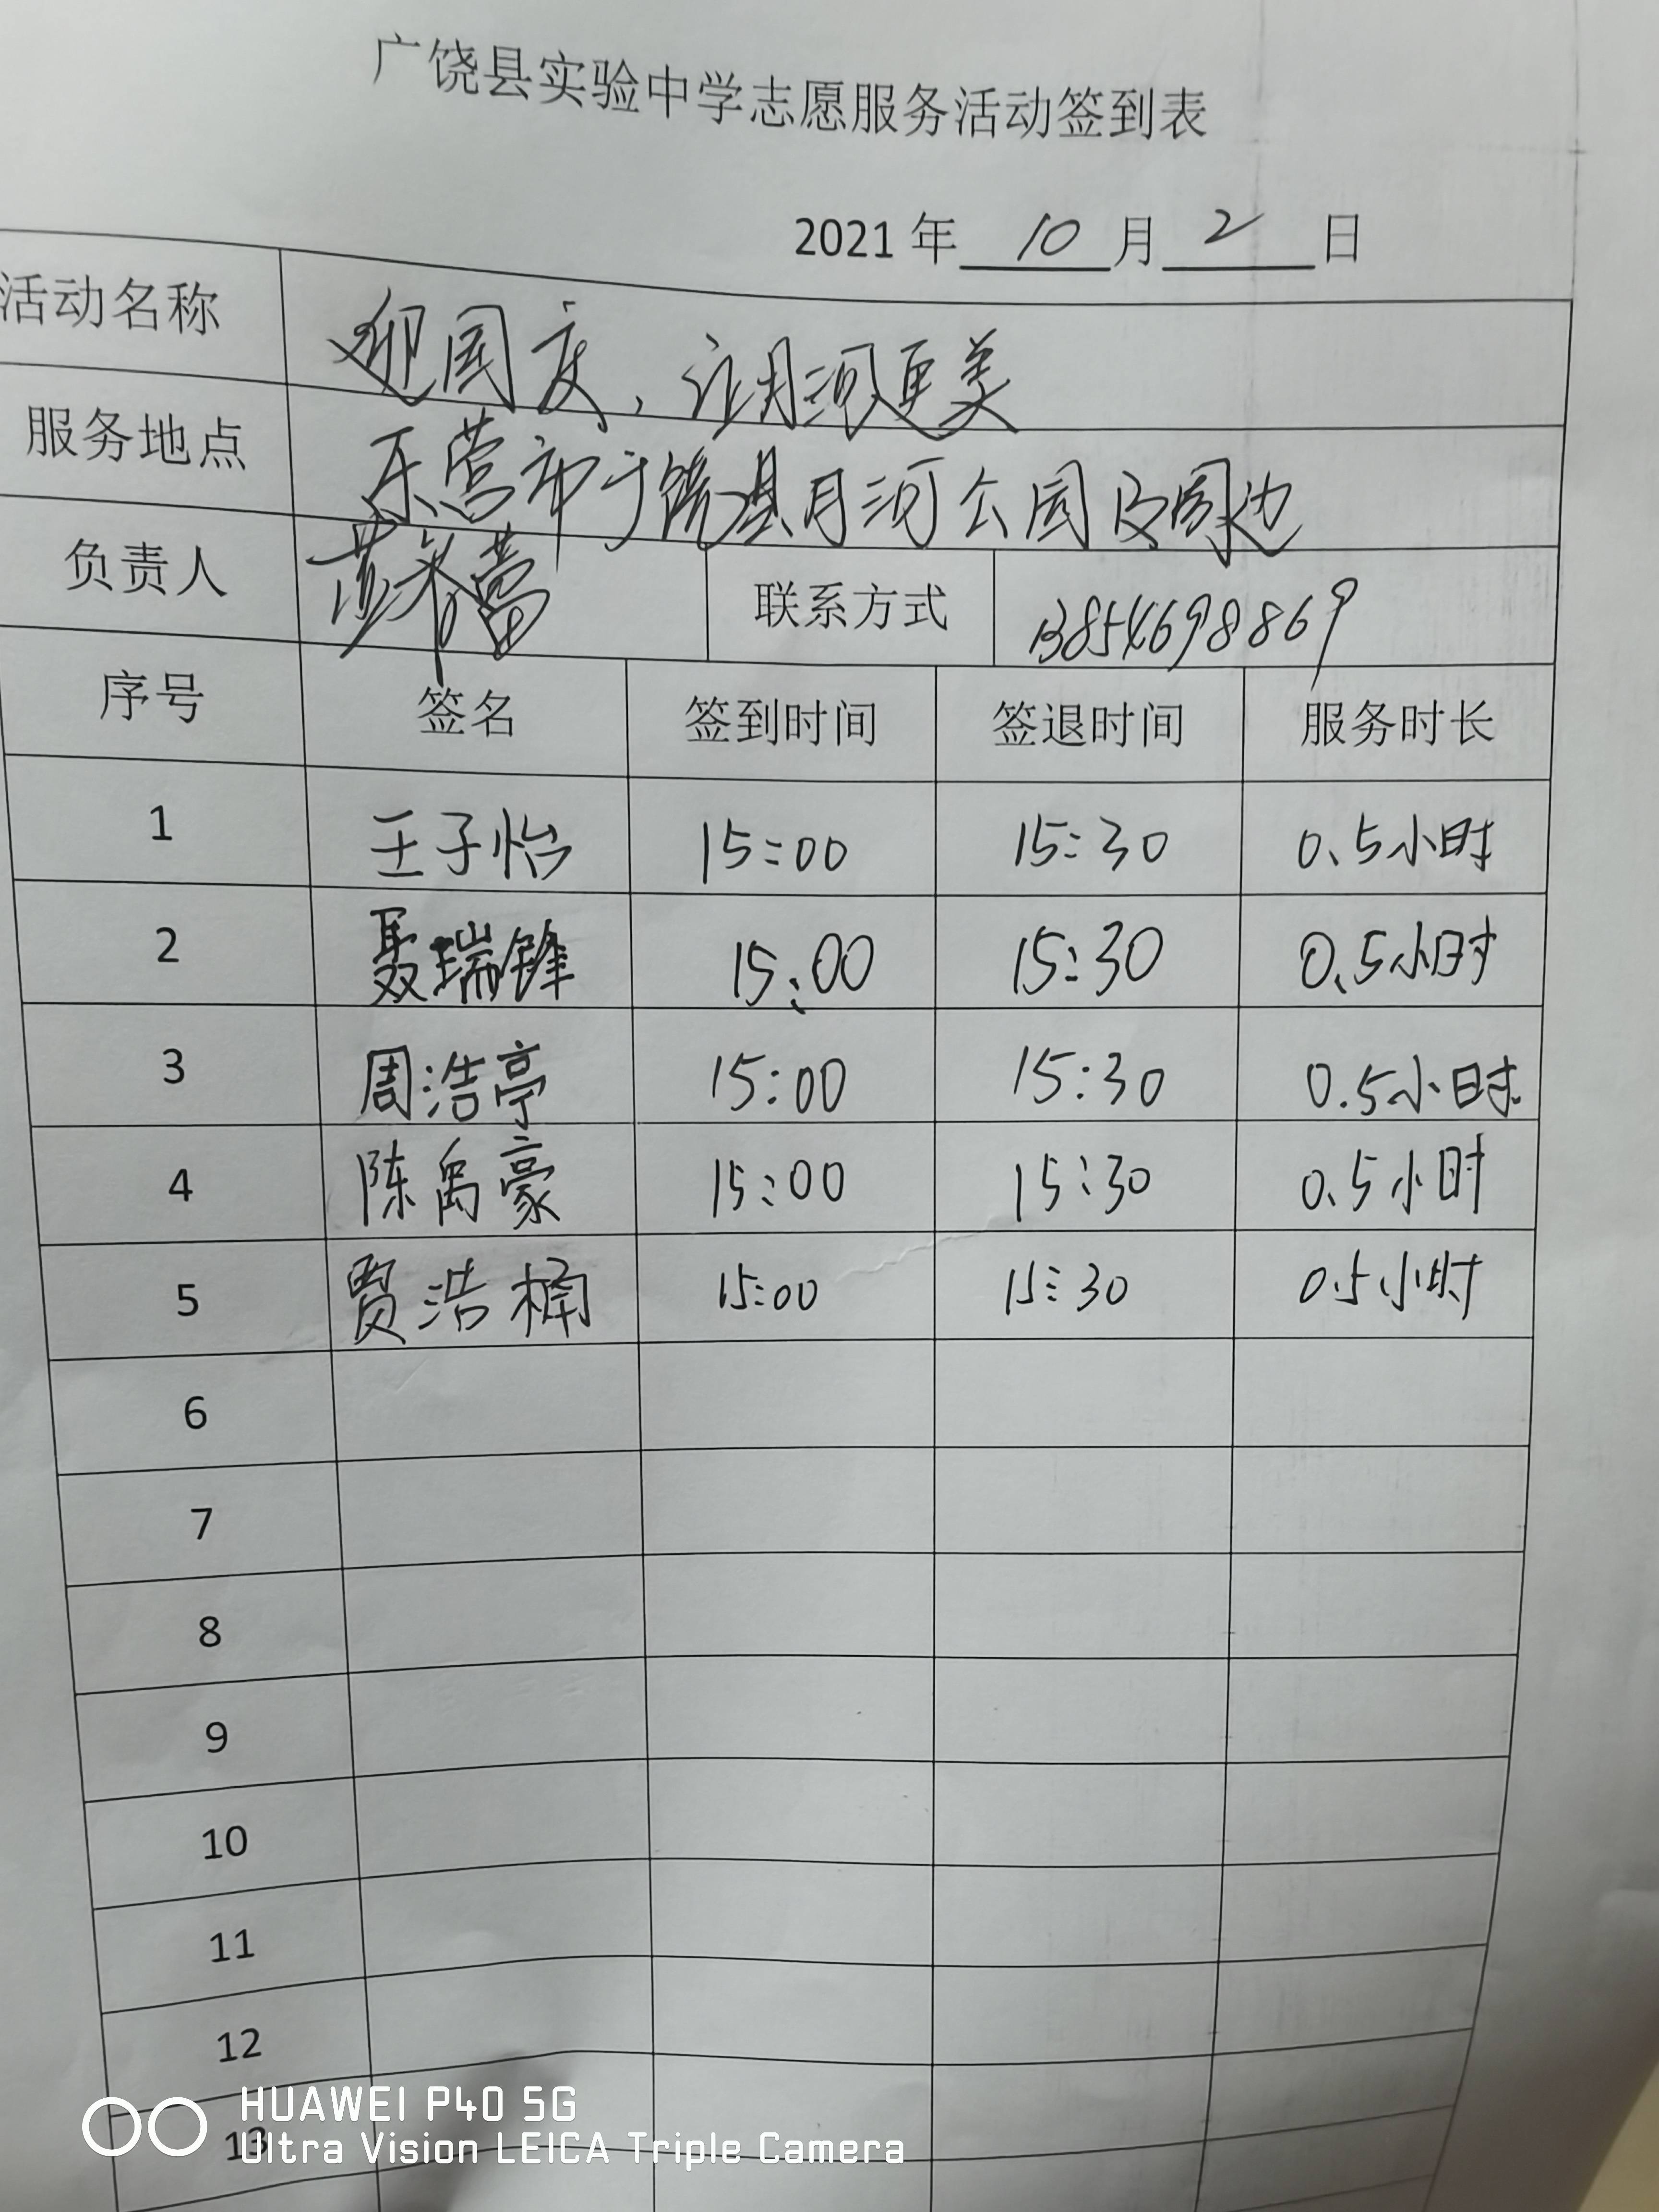 广饶县实验中学志愿服务活动签到表
2021 年 10 月 2 日
活动名称 迎国庆、让月河更美
服务地点 东营市广饶县月河公园及周边
负责人 联系方式 13854698869
序号 签名 签到时间 签退时间 服务时长
1 王子怡 15:00 15:30 0.5小时
2 聂瑞锋 15:00 15:30 0.5小时
3 周浩亭 15:00 15:30 0.5小时
4 陈禹豪 15:00 15:30 0.5小时
5 贾浩楠 15:00 15:30 0.5小时
6
7
8
9
10
11
12
13
HUAWEI P40 5G
Ultra Vision LEICA Triple Camera